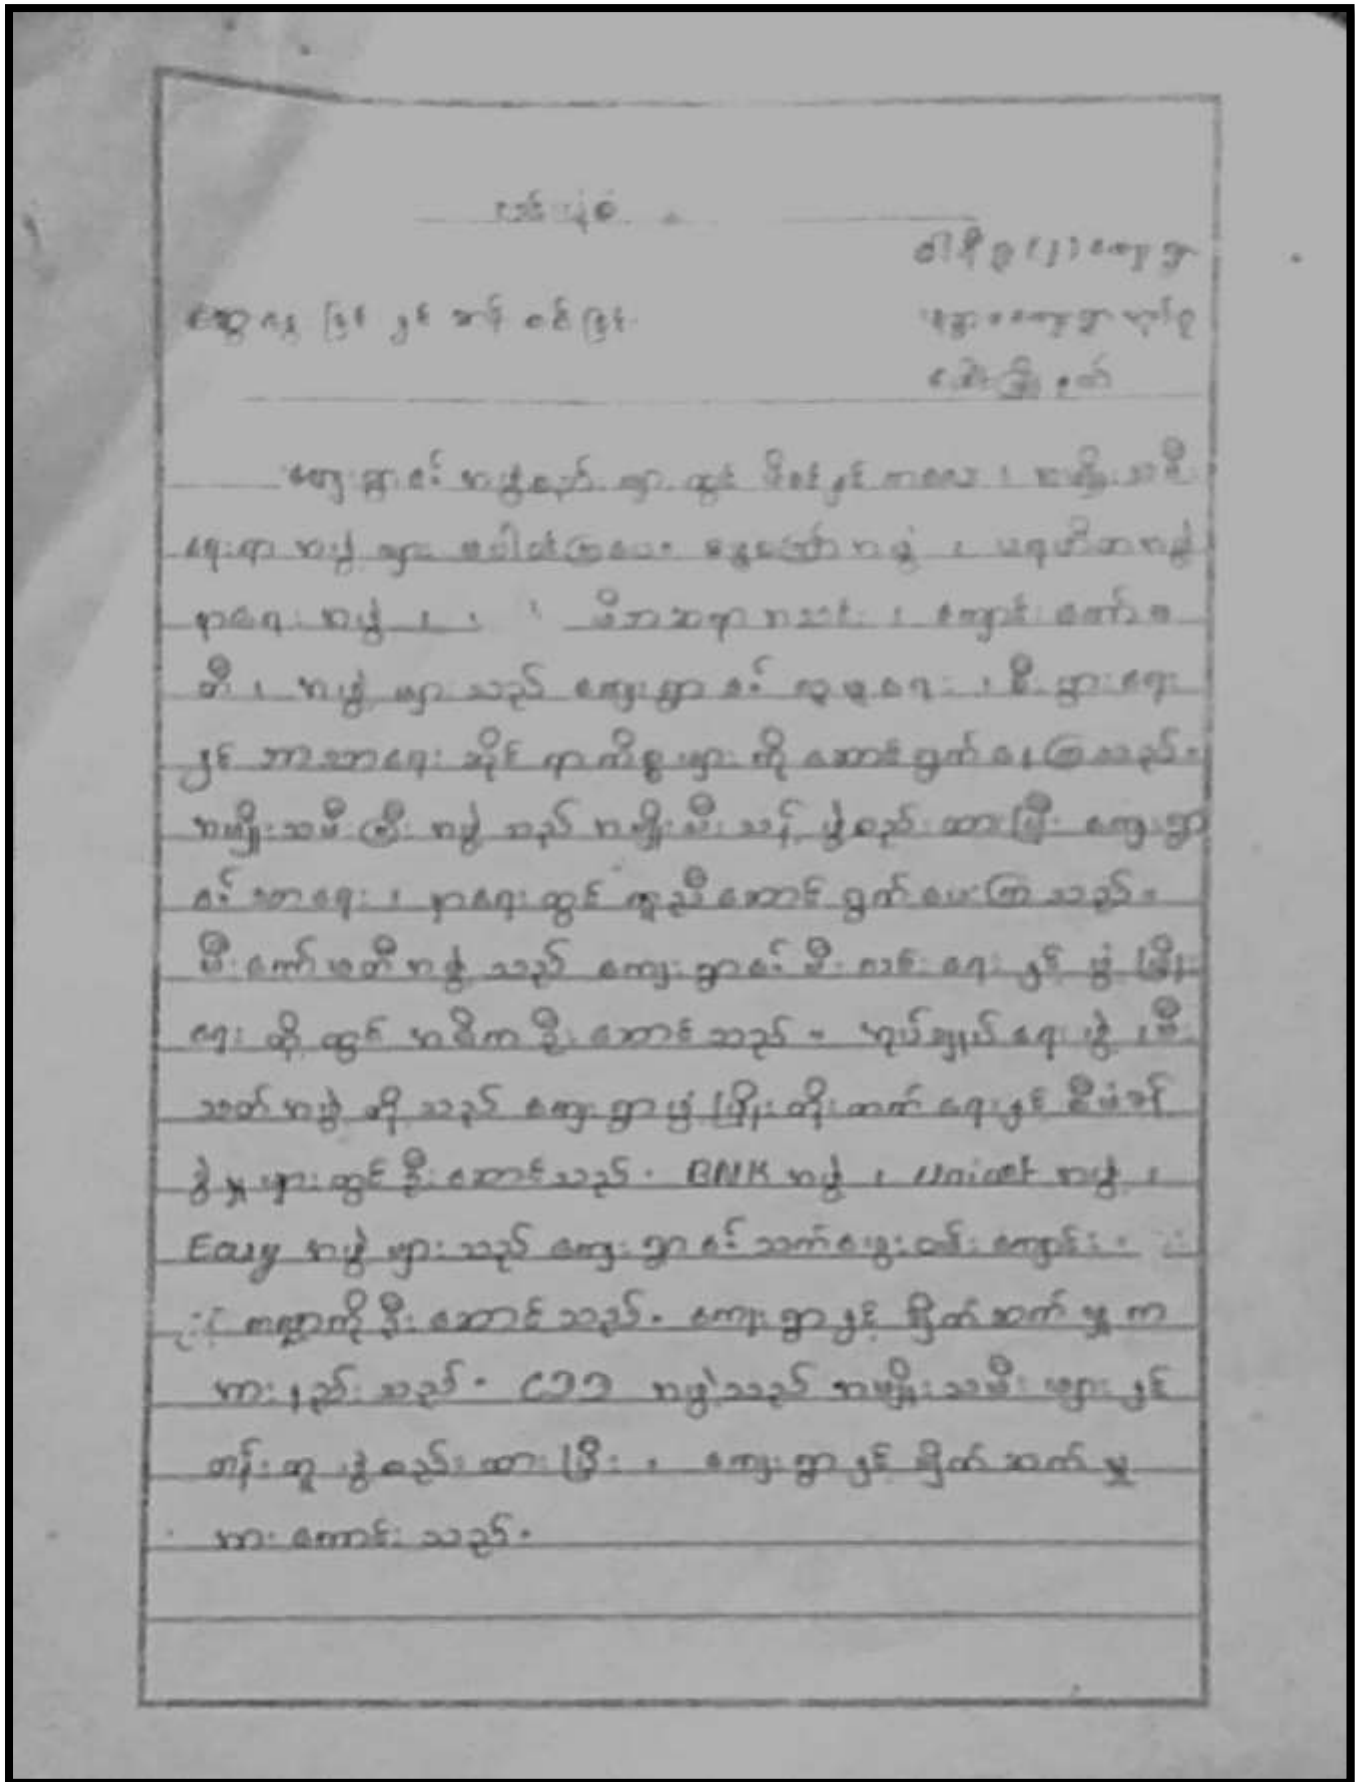 ဝါရီဥ(၂)ကျေးရွာ
ဆွေးနွေးခြင်းနှင့်ဆန်းစစ်ခြင်း
ကျေးရွာ၏ အဖွဲ့စည်းများတွင် မိခင်နှင့်ကလေး၊ အမျိုးသမီး
ရေးရာအဖွဲ့များ ၊ ပရဟိတအဖွဲ့
နာရေးအဖွဲ့၊ မိဘဆရာအသင်း၊ ကျောင်းကော်မ
တီ၊ အဖွဲ့များသည် ကျေးရွာ၏ လူမှုရေး၊ စီးပွားရေး
နှင့် ဘာသာရေးဆိုင်ရာကိစ္စများကို ဆောင်ရွက်နေကြသည်။
အမျိုးသမီးကြီးအဖွဲ့သည် အမျိုးသမီးသန့်ဖွဲ့စည်းထားပြီး ကျေးရွာ
၏ သာရေး၊ နာရေးတွင် ကူညီဆောင်ရွက်ပေးကြသည်။
မီးကော်မတီအဖွဲ့သည် ကျေးရွာ၏ မီးလင်းရေးနှင့် ဖွံ့ဖြိုး
ရေးတို့တွင် အဓိကဦးဆောင်သည်။ အုပ်ချုပ်ရေးဖွဲ့၊ မီး
သတ်အဖွဲ့တို့သည် ကျေးရွာဖွံ့ဖြိုးတိုးတက်ရေးနှင့် စီမံခန့်
ခွဲမှုများတွင်ဦးဆောင်သည်။ BNK အဖွဲ့၊ Unicet အဖွဲ့၊
Easy အဖွဲ့များသည် ကျေးရွာ၏ အသက်မွေးဝမ်းကျောင်း
ကဏ္ဍကိုဦးဆောင်သည်။ ကျေးရွာနှင့် ချိတ်ဆက်မှုက
အားနည်းသည်။ CDD အဖွဲ့သည် အမျိုးသမီးများနှင့်
တန်းတူဖွဲ့စည်းထားပြီး၊ ကျေးရွာနှင့်ချိတ်ဆက်မှု
အားကောင်းသည်။